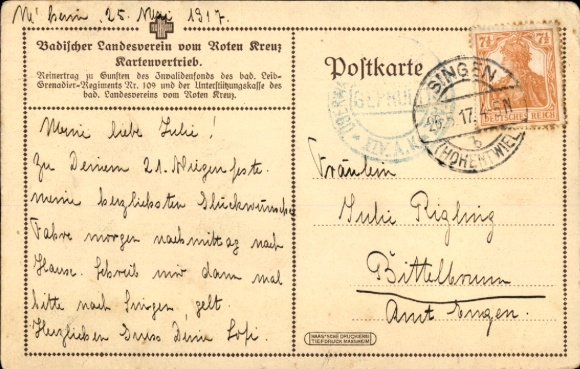 M'heim, 25. Mai 1917.
Badischer Landesverein vom Roten Kreuz
Kartenvertrieb.
Reinertrag zu Gunsten des Invalidenfonds des bad. Leib-
Grenadier-Regiments Nr. 109 und der Unterstützungskasse des
bad. Landesvereins vom Roten Kreuz.
Meine liebe Julie!
Zu Deinem 21. Wiegenfeste
meine herzlichsten Glückwünsche
Fahre morgen nachmittag nach
Hause. Schreib mir dann mal
bitte nach Singen, gelt.
Herzlichen Gruss Deine
Postkarte
GEPRÜFT
SINGEN
(HOHENTWIEL)
7½ 7½
DEUTSCHES REICH
Fräulein
Julie Rigling
Bittelbrunn
Amt Engen.
HAAS'SCHE DRUCKEREI
TIEFDRUCK MANNHEIM